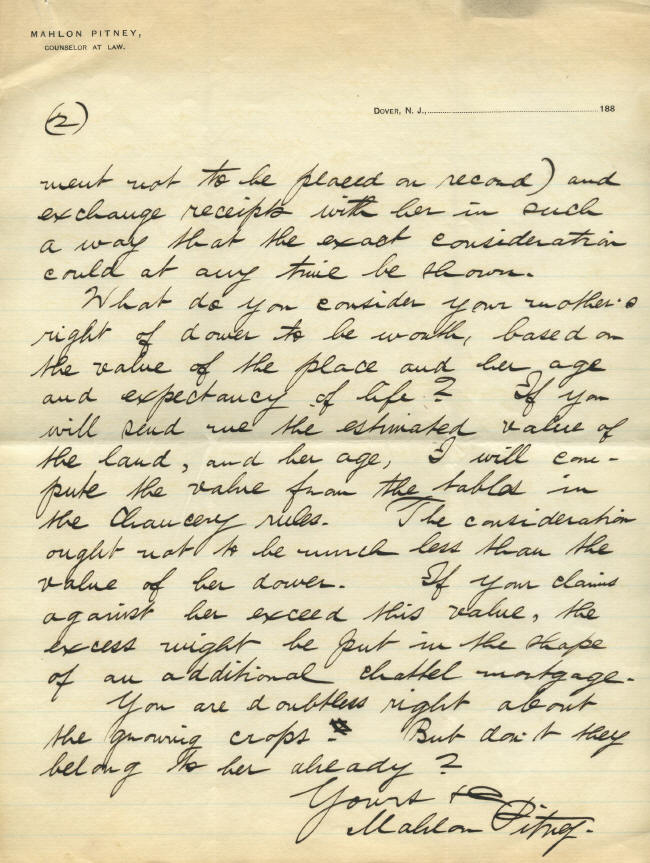 MAHLON PITNEY,
COUNSELOR AT LAW.
DOVER, N. J., 188
(2)
ment not to be placed on record) and
exchange receipts with her in such
a way that the exact consideration
could at any time be shown.
What do you consider your mother's
right of dower to be worth, based on
the value of the place and her age
and expectancy of life? If you
will send me the estimated value of
the land, and her age, I will com-
pute the value from the tables in
the Chancery rules. The consideration
ought not to be much less than the
value of her dower. If your claims
against her exceed this value, the
excess might be put in the shape
of an additional chattel mortgage.
You are doubtless right about
the growing crops. But don't they
belong to her already?
Yours &c
Mahlon Pitney.